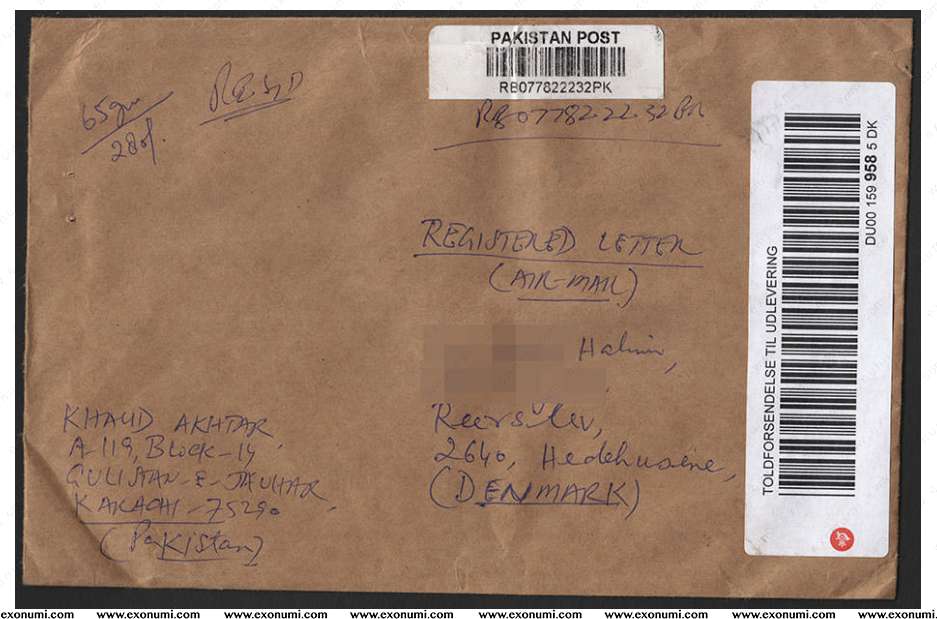 PAKISTAN POST
RB077822232PK
RB077822232PK
65gm
280/-
REGD
REGISTERED LETTER
(AIR-MAIL)
Halmi,
Reersølev,
2640, Hedehusene,
(DENMARK)
KHALID AKHTAR
A-119, Block-19
GULISTAN-E-JAUHAR
KARACHI-75290
(Pakistan)
TOLDFORSENDELSE TIL UDLEVERING
DU00 159 958 5 DK
www.exonumi.com www.exonumi.com www.exonumi.com www.exonumi.com www.exonumi.com www.exonumi.com www.exonumi.com